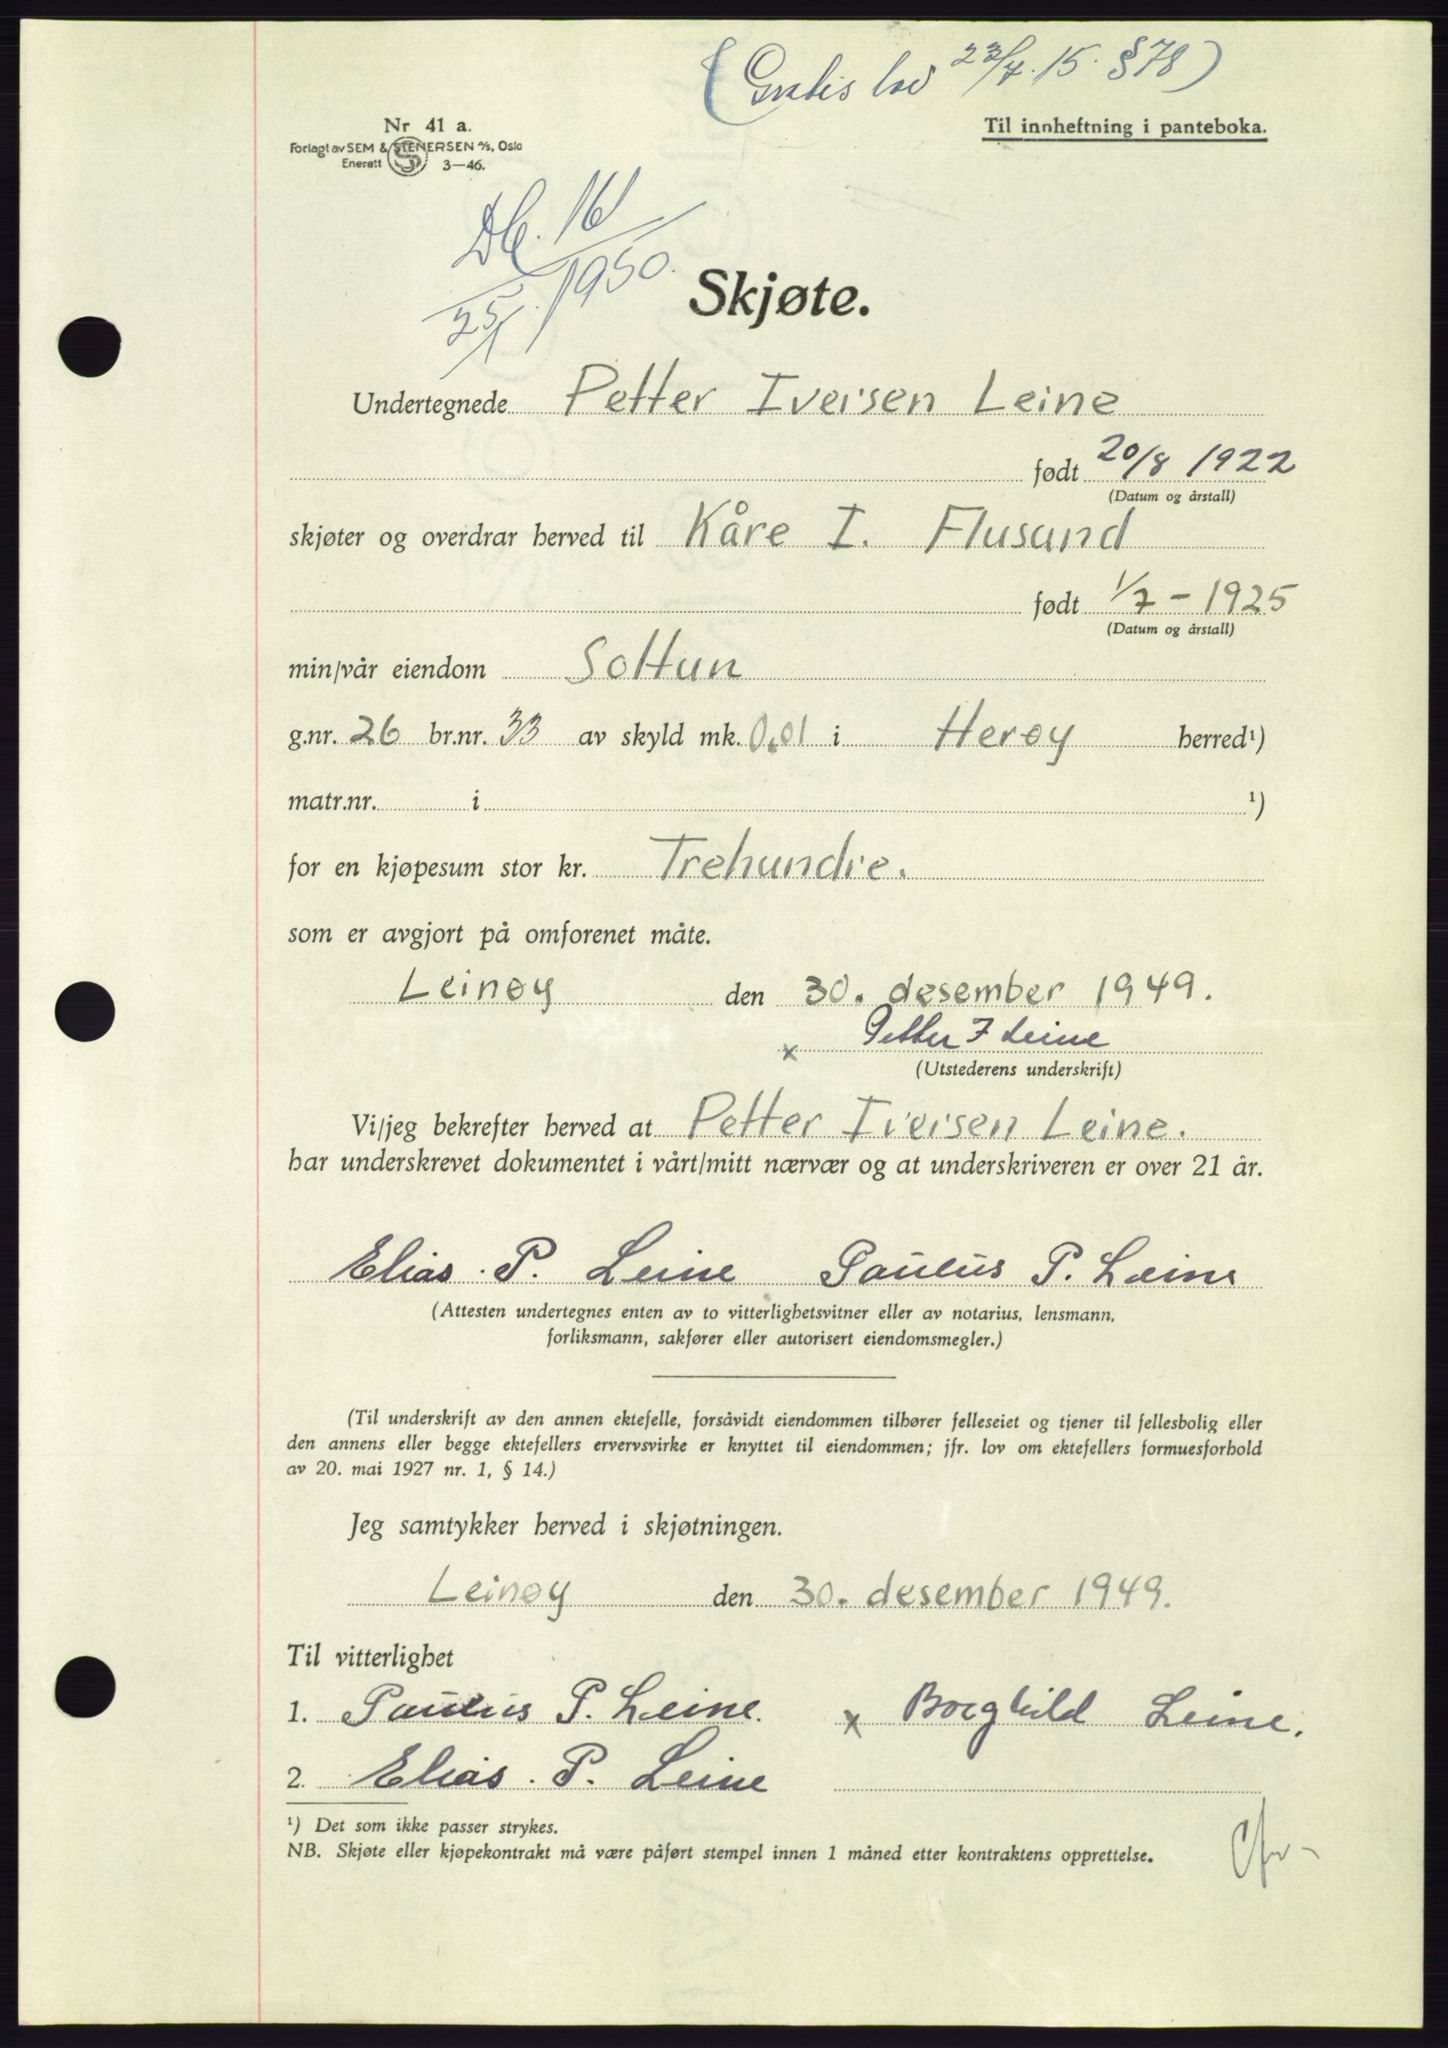 (Gratis lov 23/7.15. §78)
Nr 41 a.
Forlagt av SEM & STENERSEN A/S, Oslo
Enerett S 3—46.
Til innheftning i panteboka.
Db. 16/1950.
25/1.
Skjøte.
Undertegnede Petter Iversen Leine
født 20/8 1922
(Datum og årstall)
skjøter og overdrar herved til Kåre I. Flusund
født 1/7 - 1925
(Datum og årstall)
min/vår eiendom Soltun
g.nr. 26 br.nr. 33 av skyld mk. 0,01 i Herøy herred¹)
matr.nr. i ¹)
for en kjøpesum stor kr. Trehundre.
som er avgjort på omforenet måte.
Leinøy den 30. desember 1949.
x Petter I Leine
(Utstederens underskrift)
Vi/jeg bekrefter herved at Petter Iversen Leine.
har underskrevet dokumentet i vårt/mitt nærvær og at underskriveren er over 21 år.
Elias P. Leine Paulus P. Leine
(Attesten undertegnes enten av to vitterlighetsvitner eller av notarius, lensmann,
forliksmann, sakfører eller autorisert eiendomsmegler.)
(Til underskrift av den annen ektefelle, forsåvidt eiendommen tilhører felleseiet og tjener til fellesbolig eller
den annens eller begge ektefellers ervervsvirke er knyttet til eiendommen; jfr. lov om ektefellers formuesforhold
av 20. mai 1927 nr. 1, § 14.)
Jeg samtykker herved i skjøtningen.
Leinøy den 30. desember 1949.
Til vitterlighet
1. Paulus P. Leine. x Borghild Leine.
2. Elias. P. Leine
¹) Det som ikke passer strykes.
NB. Skjøte eller kjøpekontrakt må være påført stempel innen 1 måned etter kontraktens opprettelse.